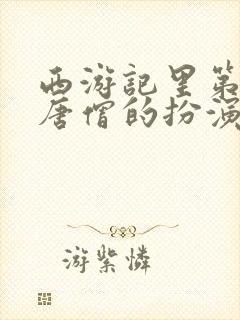 西游记里第
唐僧的扮演
游紫怜